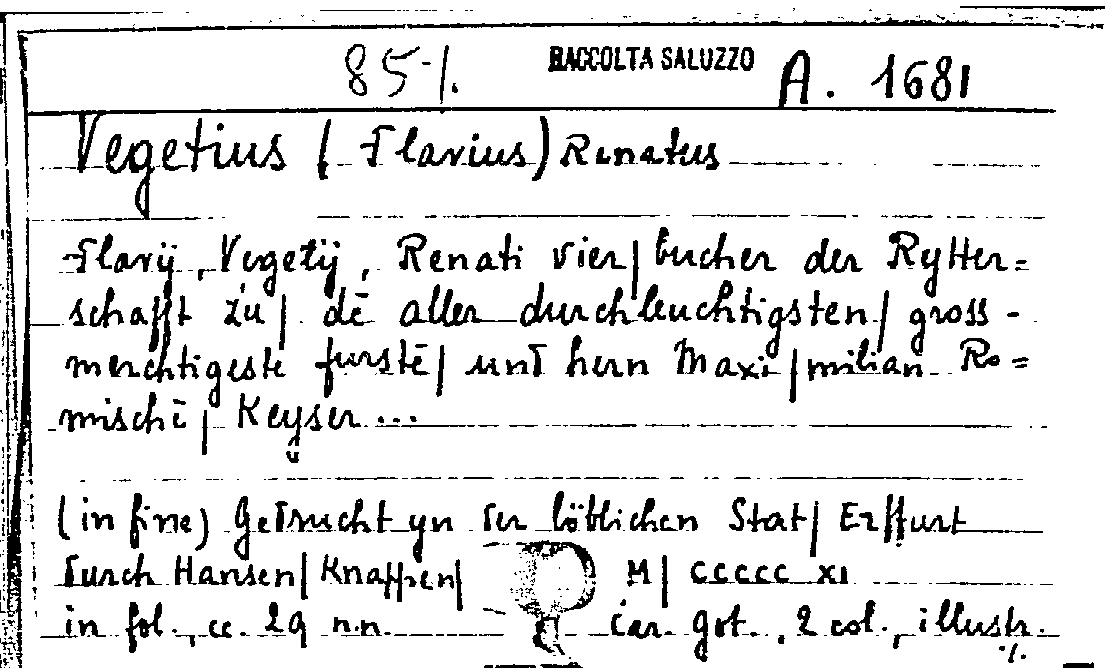 85-/. RACCOLTA SALUZZO A. 1681
Vegetius (Flavius) Renatus
Flavij, Vegetij, Renati vier| bucher der Rytter=
schafft zu| dē aller durchleuchtigsten| gross-
mechtigeste furstē| und hern Maxi|milian Ro=
mischē| Keyser...
(in fine) Gedrucht yn der löblichen Stat| Erffurt
durch Hansen| Knappen| M| CCCCC XI
in fol., cc. 29 n.n. Car. got., 2 col., illustr.
./.